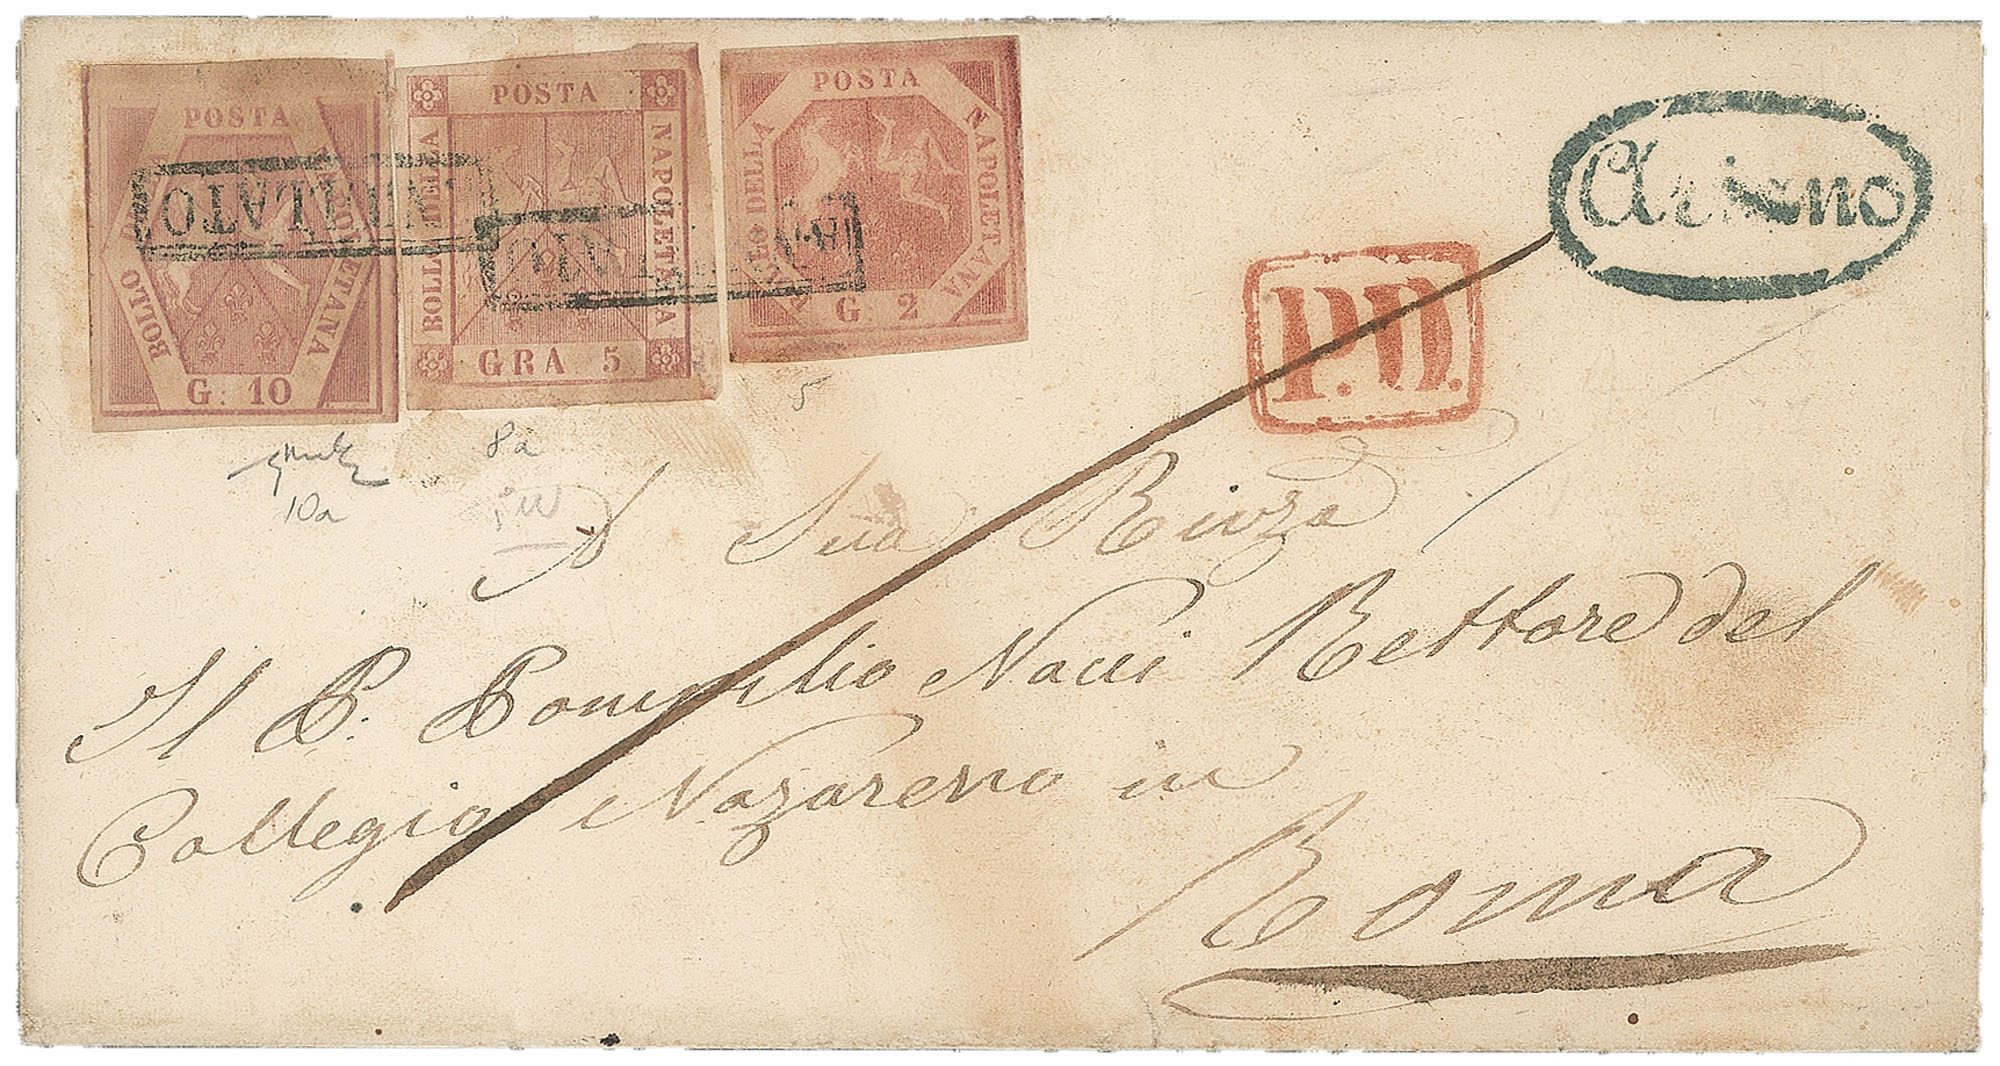 POSTA
BOLLO DELLA NAPOLETANA
G. 10
POSTA
BOLLO DELLA NAPOLETANA
GRA 5
POSTA
BOLLO DELLA NAPOLETANA
G. 2
ANNULLATO
ANNULLATO
Ariano
P.D.
10a
8a
5
A Sua Rivza
Il P. Pompilio Nocci Rettore del
Collegio Nazareno in
Roma